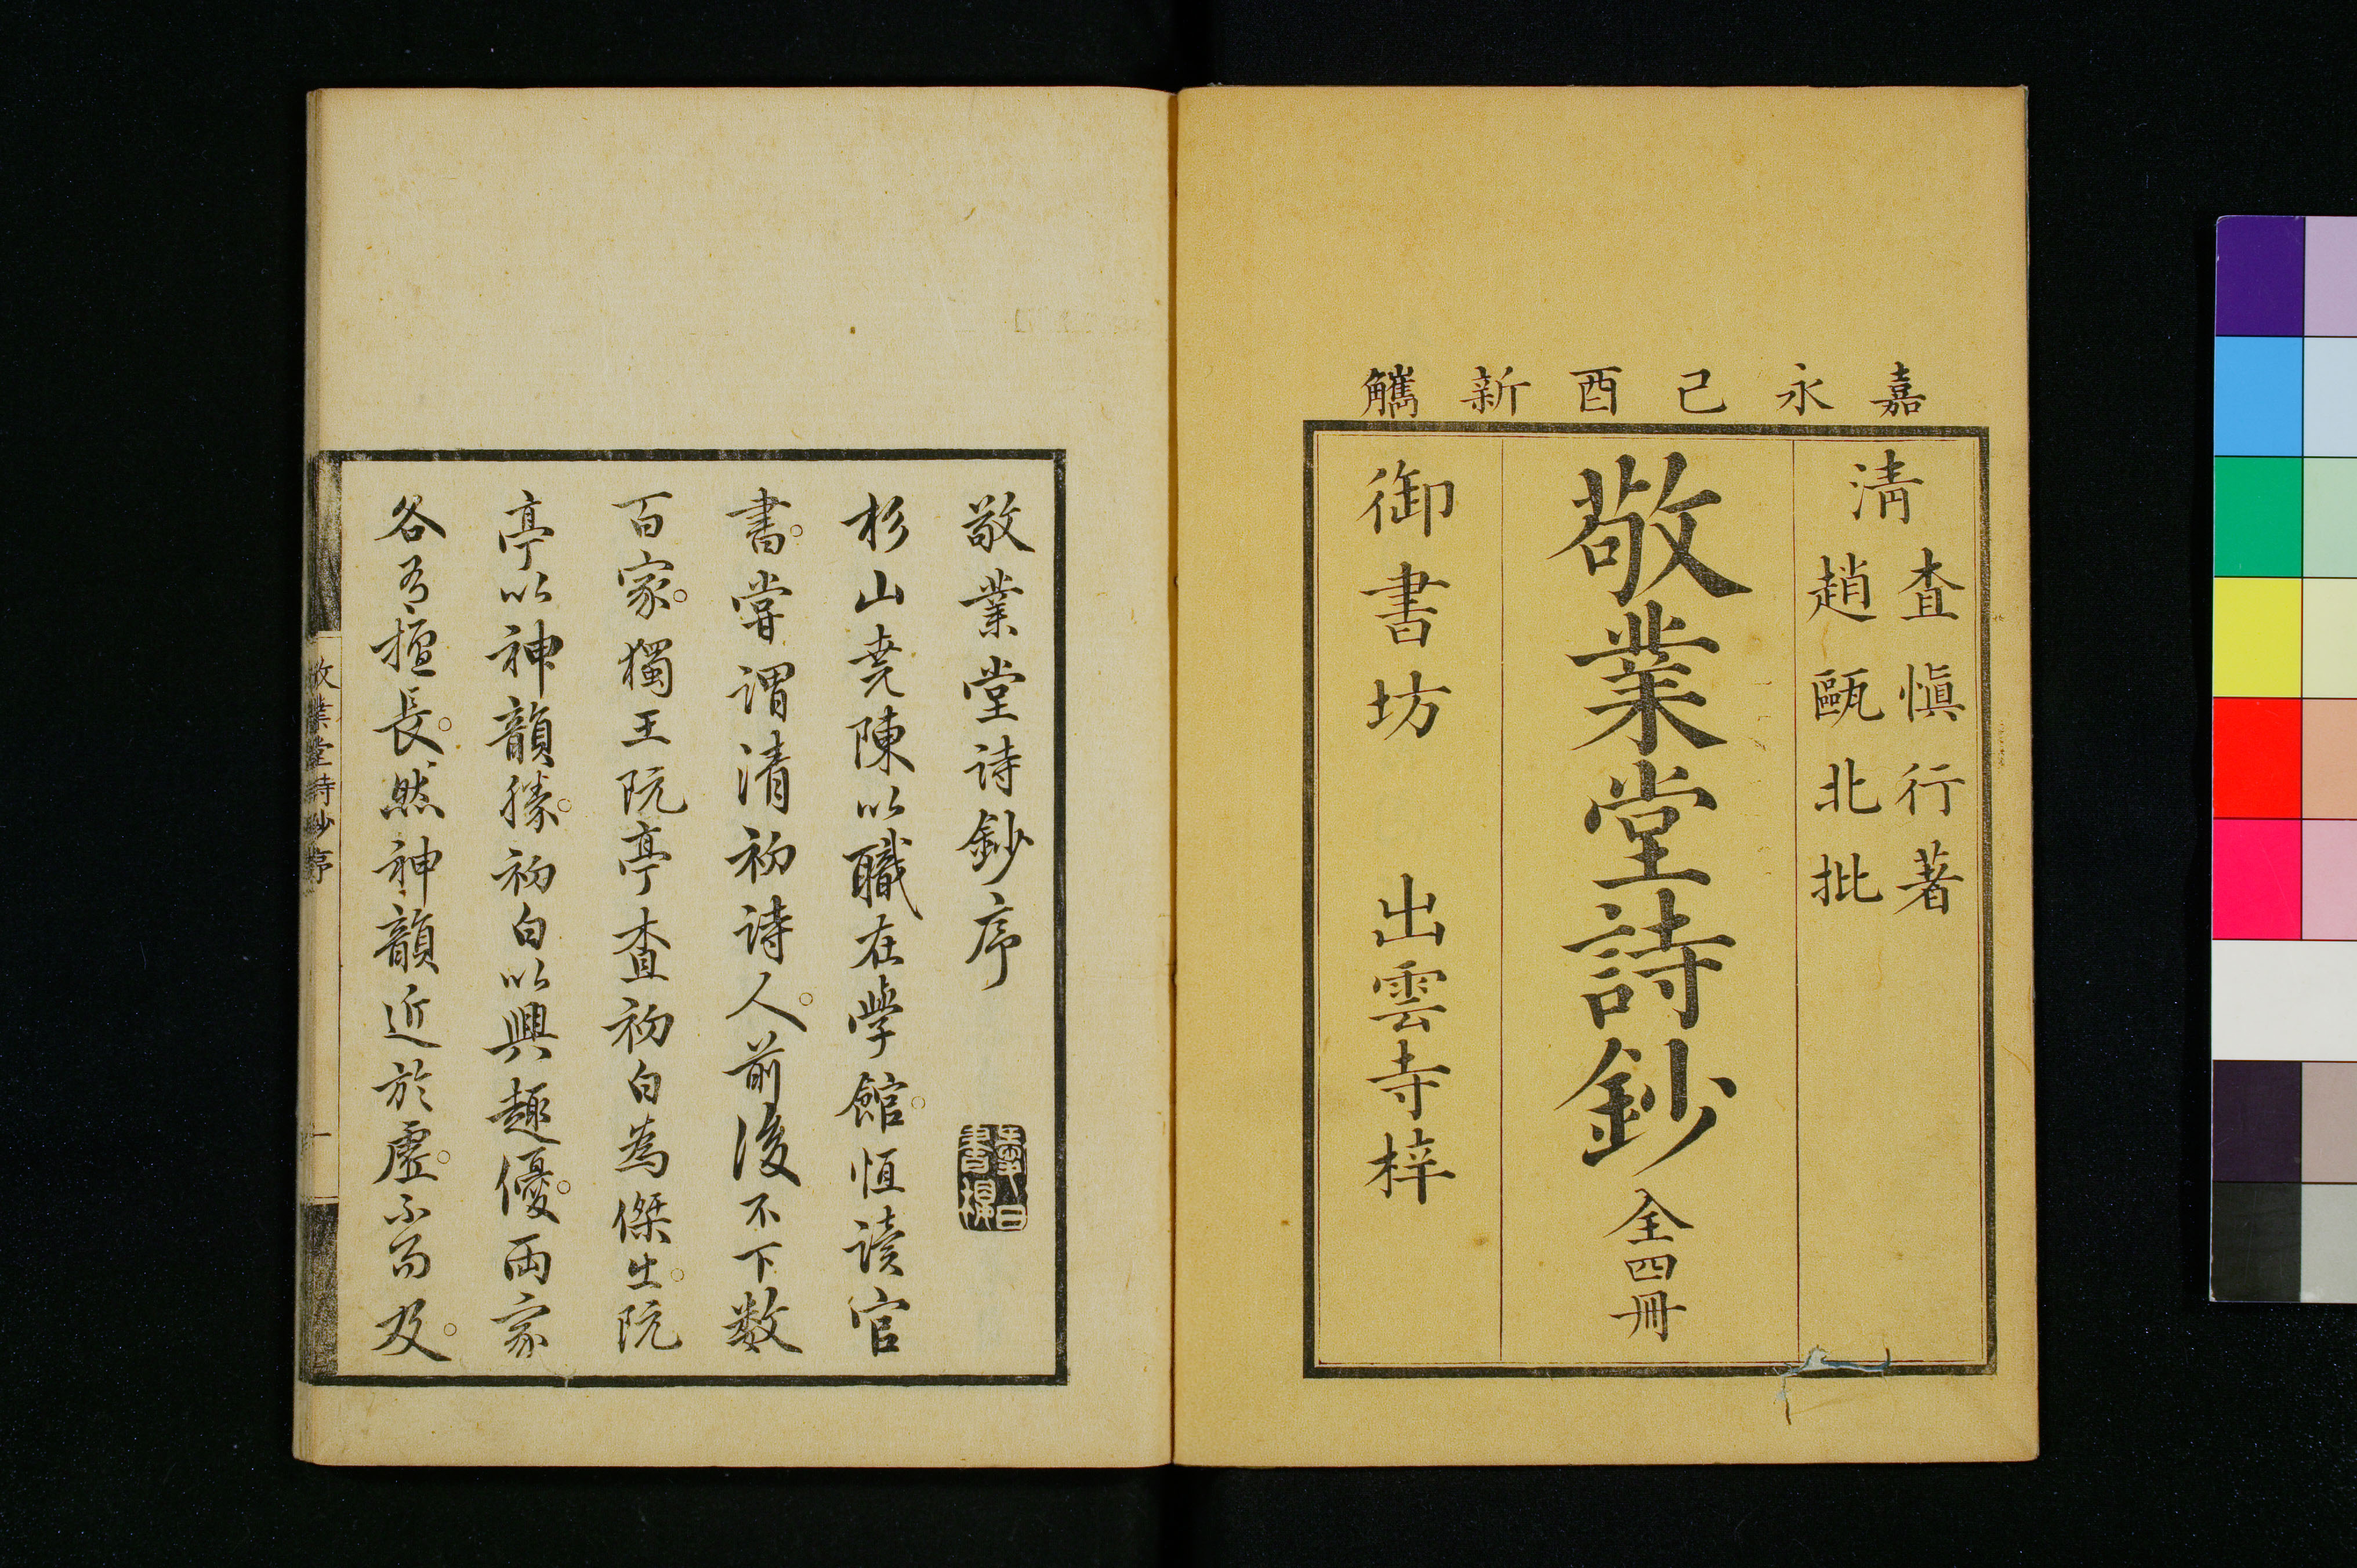 嘉永己酉新鐫
清
查慎行著
趙甌北批
敬業堂詩鈔全四冊
御書坊 出雲寺梓
敬業堂詩鈔序
杉山堯陳以職在學館。恒讀官
書。嘗謂清初詩人。前後不下數
百家。獨王阮亭查初白為傑出。阮
亭以神韻勝。初白以興趣優。兩家
各有擅長。然神韻近於虛。不善及。
敬業堂詩鈔序
一